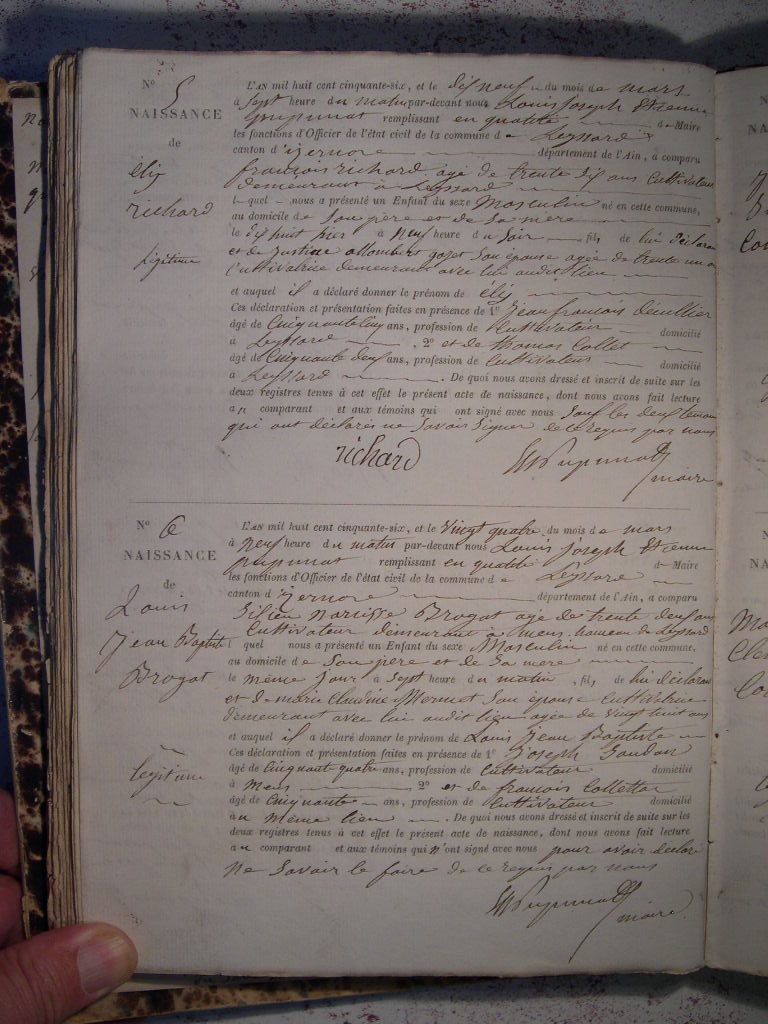 N° 5
NAISSANCE
de
élij
richard
légitime
L'AN mil huit cent cinquante-six, et le dix neuf du mois de mars
à sept heure du matin par-devant nous Louis Joseph Etienne
Guypunat remplissant en qualité de Maire
les fonctions d'Officier de l'état civil de la commune de Leyssard
canton d'izernore département de l'Ain, a comparu
françois richard agé de trente six ans Cultivateur
demeurant à Leyssard
lequel nous a présenté un Enfant du sexe Masculin né en cette commune,
au domicile de Son père et de Sa mère
le dix huit hier à Neuf heure du Soir fils de lui déclarant
et de Justine gojet Son épouse agée de trente un ans
Cultivatrice demeurant avec lui audit lieu
et auquel il a déclaré donner le prénom de élij
Ces déclaration et présentation faites en présence de 1° Jean françois
âgé de Cinquante Cinq ans, profession de Cultivateur domicilié
à Leyssard , 2° et de thomas Collet
âgé de Cinquante deux ans, profession de Cultivateur domicilié
à Leyssard . De quoi nous avons dressé et inscrit de suite sur les
deux registres tenus à cet effet le présent acte de naissance, dont nous avons fait lecture
au comparant et aux témoins qui ont signé avec nous Sauf les deux temoins
qui ont déclarés ne Savoir Signer de ce requis par nous
richard
maire
N° 6
NAISSANCE
de
Louis
Jean Baptiste
Brogat
légitime
L'AN mil huit cent cinquante-six, et le vingt quatre du mois de mars
à neuf heure du matin par-devant nous Louis Joseph Etienne
remplissant en qualité de Maire
les fonctions d'Officier de l'état civil de la commune de Leyssard
canton d'izernore département de l'Ain, a comparu
narcisse Brogat agé de trente deux ans
Cultivateur demeurant à hameau de Leyssard
lequel nous a présenté un Enfant du sexe Masculin né en cette commune,
au domicile de Son père et de Sa mère
le même jour à Sept heure du matin , fils de lui déclarant
et de marie Claudine Mermet Son épouse Cultivatrice
demeurant avec lui audit lieu agée de vingt huit ans
et auquel il a déclaré donner le prénom de Louis Jean Baptiste
Ces déclaration et présentation faites en présence de 1° Joseph
âgé de Cinquante quatre ans, profession de Cultivateur domicilié
à 2° et de françois
âgé de Cinquante ans, profession de Cultivateur domicilié
au même lieu . De quoi nous avons dressé et inscrit de suite sur les
deux registres tenus à cet effet le présent acte de naissance, dont nous avons fait lecture
au comparant et aux témoins qui n'ont signé avec nous pour avoir déclaré
ne Savoir le faire de ce requis par nous
maire